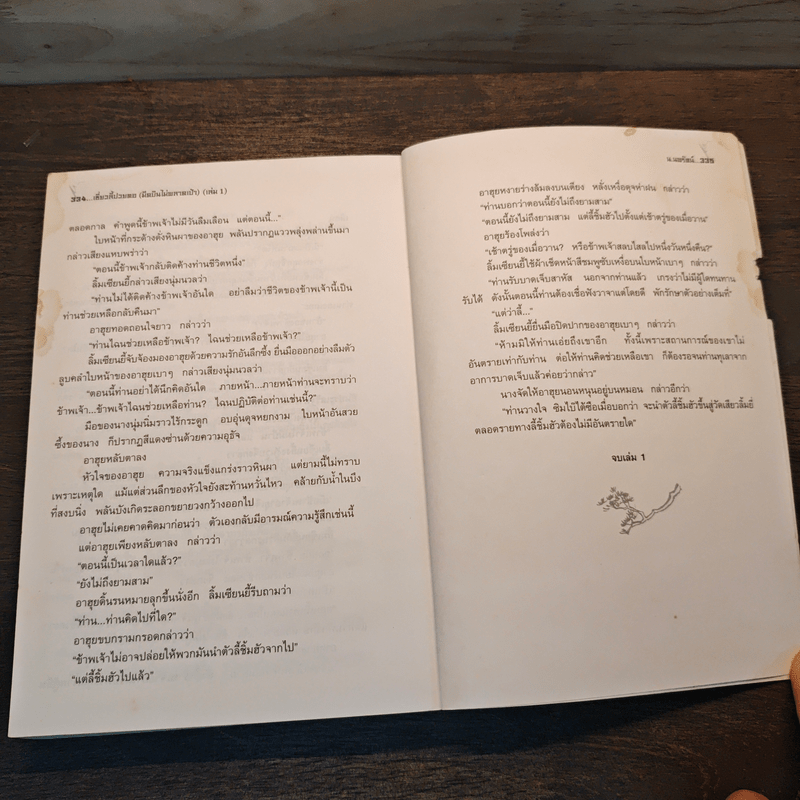 334...เซี่ยวลี้ปวยตอ (มีดบินไม่พลาดเป้า) (เล่ม 1)
ตลอดกาล คำพูดนี้ข้าพเจ้าไม่มีวันลืมเลือน แต่ตอนนี้..."
ใบหน้าที่กระด้างดั่งหินผาของอาฮุย พลันปรากฏแววพลุ่งพล่านขึ้นมา
กล่าวเสียงแหบพร่าว่า
"ตอนนี้ข้าพเจ้ากลับติดค้างท่านชีวิตหนึ่ง"
ลิ้มเซียนยี้กล่าวเสียงนุ่มนวลว่า
"ท่านไม่ได้ติดค้างข้าพเจ้าอันใด อย่าลืมว่าชีวิตของข้าพเจ้านี้เป็น
ท่านช่วยเหลือกลับคืนมา"
อาฮุยทอดถอนใจยาว กล่าวว่า
"ท่านไฉนช่วยเหลือข้าพเจ้า? ไฉนช่วยเหลือข้าพเจ้า?"
ลิ้มเซียนยี้จับจ้องมองอาฮุยด้วยความรักอันลึกซึ้ง ยื่นมือออกอย่างลืมตัว
ลูบคลำใบหน้าของอาฮุยเบาๆ กล่าวเสียงนุ่มนวลว่า
"ตอนนี้ท่านอย่าได้นึกคิดอันใด ภายหน้า...ภายหน้าท่านจะทราบว่า
ข้าพเจ้า...ข้าพเจ้าไฉนช่วยเหลือท่าน? ไฉนปฏิบัติต่อท่านเช่นนี้?"
มือของนางนุ่มนิ่มราวไร้กระดูก อบอุ่นดุจหยกงาม ใบหน้าอันสวย
ซึ้งของนาง ก็ปรากฏสีแดงซ่านด้วยความอุธัจ
อาฮุยหลับตาลง
หัวใจของอาฮุย ความจริงแข็งแกร่งราวหินผา แต่ยามนี้ไม่ทราบ
เพราะเหตุใด แม้แต่ส่วนลึกของหัวใจยังสะท้านหวั่นไหว คล้ายกับน้ำในบึง
ที่สงบนิ่ง พลันบังเกิดระลอกขยายวงกว้างออกไป
อาฮุยไม่เคยคาดคิดมาก่อนว่า ตัวเองกลับมีอารมณ์ความรู้สึกเช่นนี้
แต่อาฮุยเพียงหลับตาลง กล่าวว่า
"ตอนนี้เป็นเวลาใดแล้ว?"
"ยังไม่ถึงยามสาม"
อาฮุยดิ้นรนหมายลุกขึ้นนั่งอีก ลิ้มเซียนยี้รีบถามว่า
"ท่าน...ท่านคิดไปที่ใด?"
อาฮุยขบกรามกรอดกล่าวว่า
"ข้าพเจ้าไม่อาจปล่อยให้พวกมันนำตัวลี้ชิ้มฮัวจากไป"
"แต่ลี้ชิ้มฮัวไปแล้ว"
น.นพรัตน์...335
อาฮุยหงายร่างล้มลงบนเตียง หลั่งเหงื่อดุจห่าฝน กล่าวว่า
"ท่านบอกว่าตอนนี้ยังไม่ถึงยามสาม"
"ตอนนี้ยังไม่ถึงยามสาม แต่ลี้ชิ้มฮัวไปตั้งแต่เช้าตรู่ของเมื่อวาน"
อาฮุยร้องโพล่งว่า
"เช้าตรู่ของเมื่อวาน? หรือข้าพเจ้าสลบไสลไปหนึ่งวันหนึ่งคืน?"
ลิ้มเซียนยี้ใช้ผ้าเช็ดหน้าสีชมพูซับเหงื่อบนใบหน้าเบาๆ กล่าวว่า
"ท่านรับบาดเจ็บสาหัส นอกจากท่านแล้ว เกรงว่าไม่มีผู้ใดทนทาน
รับได้ ดังนั้นตอนนี้ท่านต้องเชื่อฟังวาจาแต่โดยดี พักรักษาตัวอย่างเต็มที่"
"แต่ว่าลี้..."
ลิ้มเซียนยี้ยื่นมือปิดปากของอาฮุยเบาๆ กล่าวว่า
"ห้ามมิให้ท่านเอ่ยถึงเขาอีก ทั้งนี้เพราะสถานการณ์ของเขาไม่
อันตรายเท่ากับท่าน ต่อให้ท่านคิดช่วยเหลือเขา ก็ต้องรอจนท่านทุเลาจาก
อาการบาดเจ็บแล้วค่อยว่ากล่าว"
นางจัดให้อาฮุยนอนหนุนอยู่บนหมอน กล่าวอีกว่า
"ท่านวางใจ ซิมไป๋ได้ซือเมื่อบอกว่า จะนำตัวลี้ชิ้มฮัวขึ้นสู่วัดเสียวลิ้มยี่
ตลอดรายทางลี้ชิ้มฮัวต้องไม่มีอันตรายใด"
จบเล่ม 1